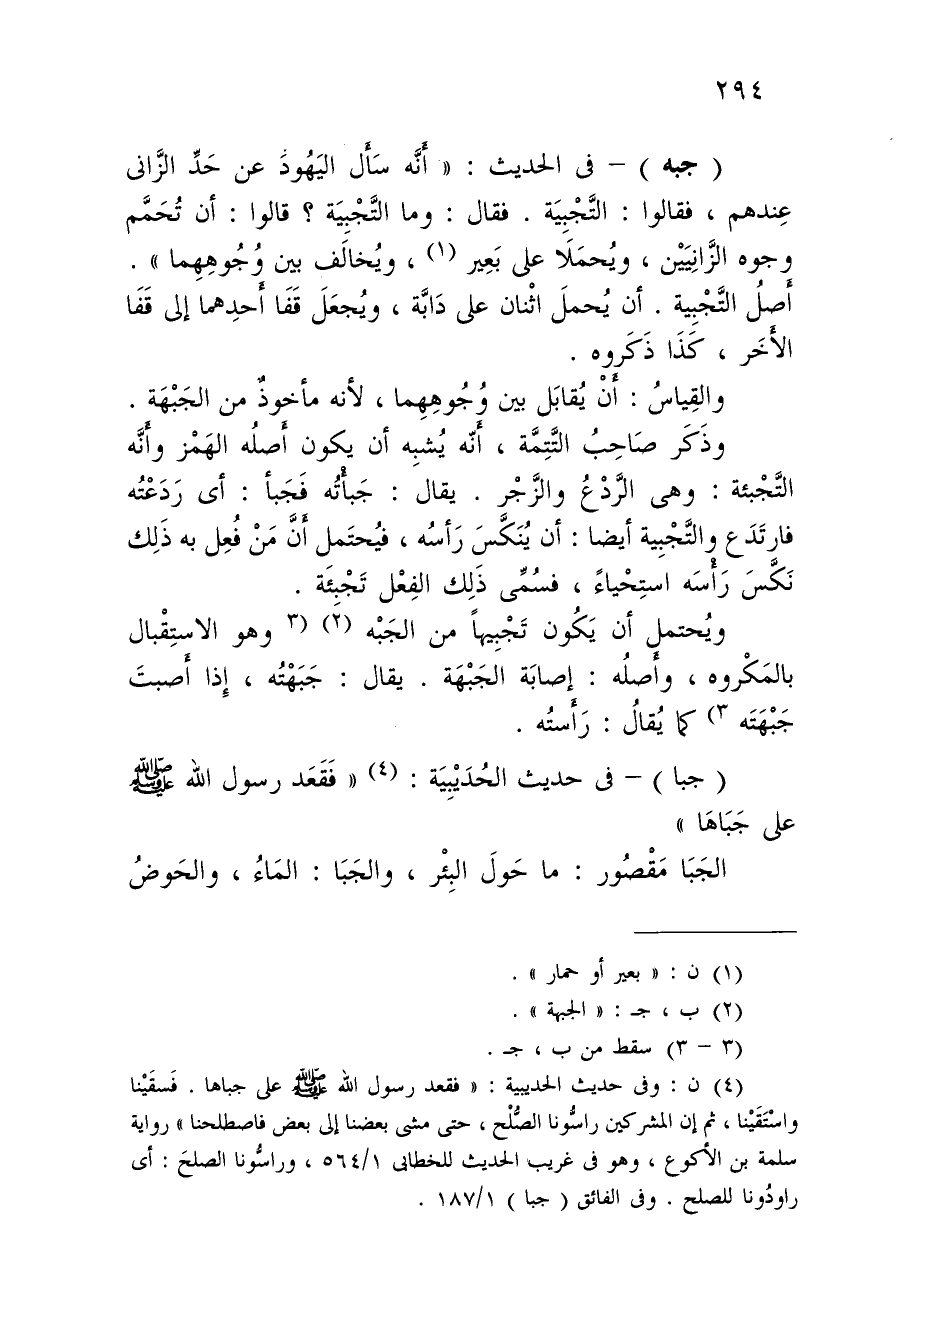 ٢٩٤
( جبه ) – فى الحديث : « أَنَّه سَأَل اليَهُودَ عن حَدِّ الزَّانى
عِندهم ، فقالوا : التَّجْبِيَة . فقال : وما التَّجْبِيَة ؟ قالوا : أن تُحَمَّم
وجوه الزَّانِيَيْن ، ويُحمَلَا على بَعِير (١) ، ويُخالَف بين وُجُوهِهِما » .
أَصلُ التَّجْبِية . أن يُحملَ اثْنان على دَابَّة ، ويُجعَلَ قَفَا أَحدِهما إلى قَفَا
الأَخَر ، كَذَا ذَكَروه .
والقِياسُ : أَنْ يُقابَل بين وُجُوهِهِما ، لأنه مأخوذٌ من الجَبْهَة .
وذَكَر صَاحِبُ التَّتِمَّة ، أَنّه يُشبِه أن يكون أَصلُه الهَمْز وأَنَّه
التَّجْبئة : وهى الرَّدْعُ والزَّجْر . يقال : جَبأْتُه فَجَبأ : أى رَدَعْتُه
فارتَدَع والتَّجْبِية أيضا : أن يُنَكَّسَ رَأسُه ، فيُحتَمل أَنَّ مَنْ فُعِل به ذَلِك
نَكَّسَ رَأْسَه استِحْياءً ، فسُمِّى ذَلِك الفِعْل تَجْبِئَة .
ويُحتمل أن يَكُون تَجْبِيهاً من الجَبْه (٢) (٣ وهو الاستِقْبال
بالمَكْروه ، وأَصلُه : إصابَة الجَبْهَة . يقال : جَبَهْتُه ، إِذا أَصبتَ
جَبْهَتَه ٣) كما يُقالُ : رَأَستُه .
( جبا ) – فى حديث الحُدَيْبِيَة : (٤) « فَقَعَد رسول الله ﷺ
على جَبَاهَا »
الجَبَا مَقْصُور : ما حَولَ البِئْر ، والجَبَا : المَاءُ ، والحَوضُ
(١) ن : « بعير أو حمار » .
(٢) ب ، جـ : « الجبهة » .
(٣ – ٣) سقط من ب ، جـ .
(٤) ن : وفى حديث الحديبية : « فقعد رسول الله ﷺ على جباها . فَسقَيْنا
واسْتَقَيْنا ، ثم إن المشركين راسُّونا الصُّلْح ، حتى مشى بعضنا إلى بعض فاصطلحنا » رواية
سلمة بن الأكوع ، وهو فى غريب الحديث للخطابى ٥٦٤/١ ، وراسُّونا الصلحَ : أى
راودُونا للصلح . وفى الفائق ( جبا ) ١٨٧/١ .